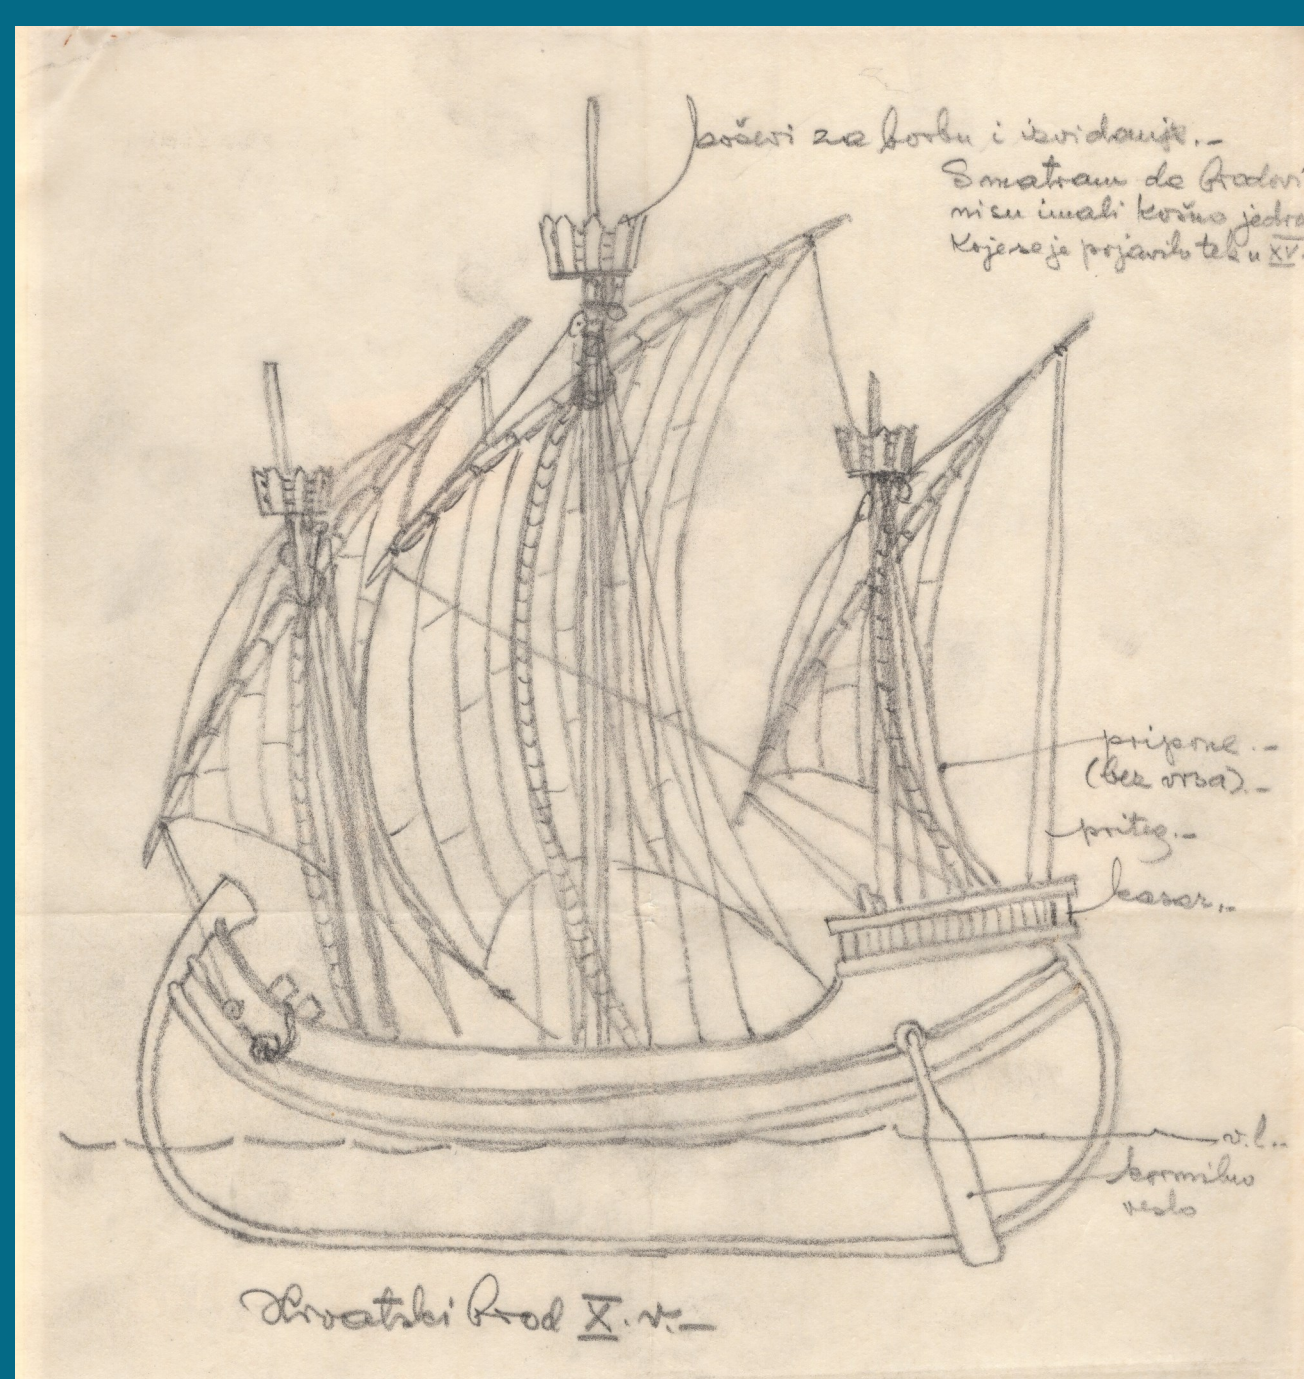 koševi za borbu i izviđanje.-
Smatram da brodovi
nisu imali košno jedro
koje se je pojavilo tek u XV.
pripone.-
(bez vrsa).-
priteg.-
kasar.-
v.l..
kormilno
veslo
Hrvatski brod X. v.-